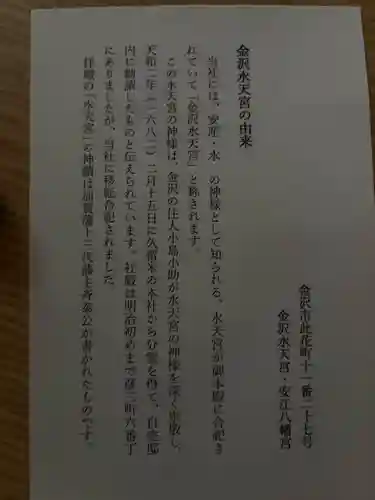 金沢水天宮の由来
当社には、安産・水の神様として知られる、水天宮が御本殿に合祀さ
れていて「金沢水天宮」と称されます。
この水天宮の神様は、金沢の住人小島小助が水天宮の神様を深く崇敬し、
天和二年(一六八二)二月十五日に久留米の本社から分霊を得て、自宅邸
内に勧請したものと伝えられています。社殿は明治初めまで彦三町六番丁
にありましたが、当社に移転合祀されました。
拝殿の「水天宮」の神額は加賀藩十三代藩主斉泰公が書かれたものです。
金沢市此花町十一番二十七号
金沢水天宮・安江八幡宮